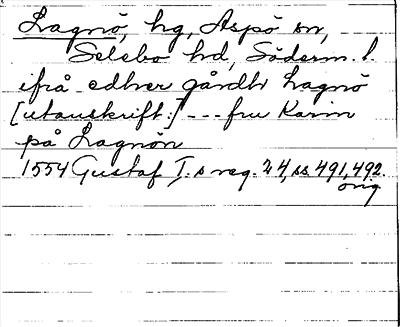 Lagnö, hg, Aspö sn,
Selebo hd, Söderm. l.
ifrå edher gårdh Lagnö
[utanskrift:] --- fru Karin
på Lagnön
1554 Gustaf I:s reg. 24, ss. 491, 492.
orig